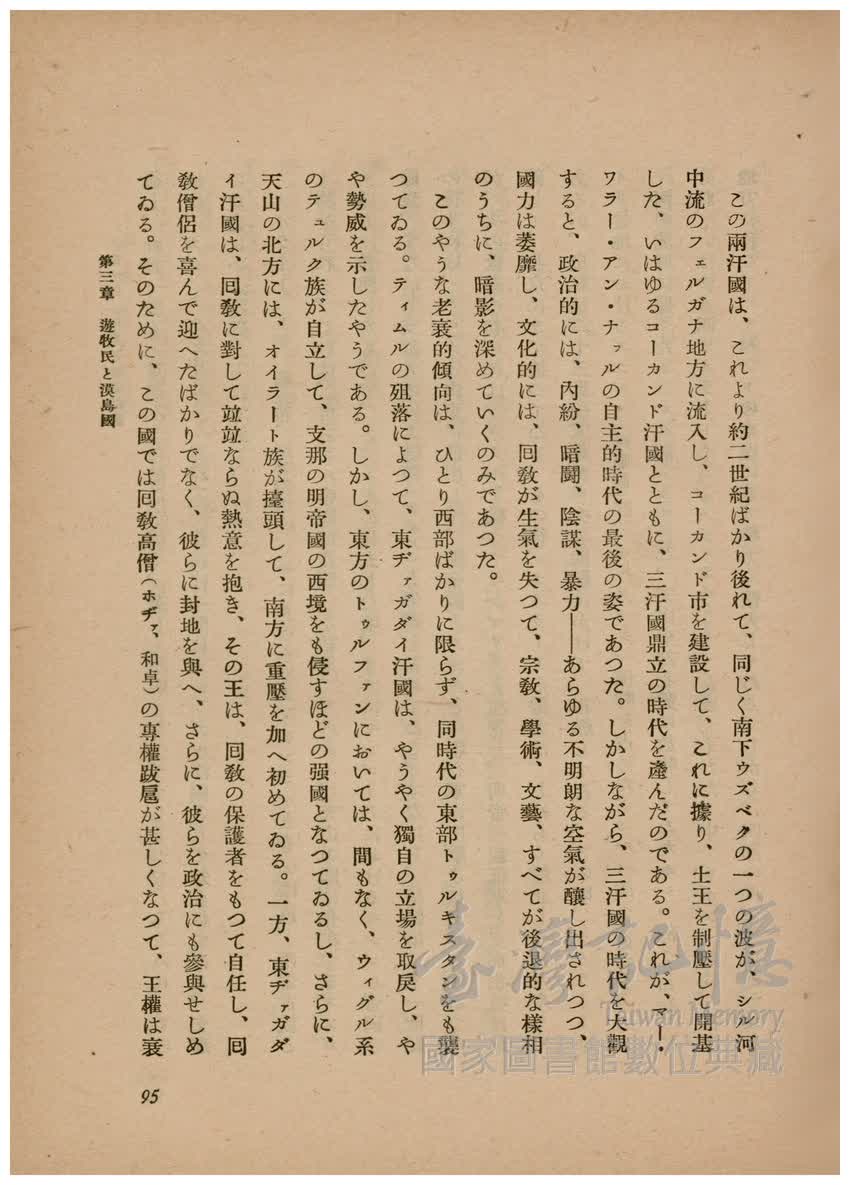 この兩汗國は、これより約二世紀ばかり後れて、同じく南下ウズベクの一つの波が、シル河
中流のフェルガナ地方に流入し、コーカンド市を建設して、これに據り、土王を制壓して開基
した、いはゆるコーカンド汗國とともに、三汗國鼎立の時代を產んだのである。これが、マー・
ワラー・アン・ナァルの自主的時代の最後の姿であつた。しかしながら、三汗國の時代を大觀
すると、政治的には、內紛、暗鬪、陰謀、暴力――あらゆる不明朗な空氣が釀し出されつつ、
國力は萎靡し、文化的には、囘敎が生氣を失つて、宗敎、學術、文藝、すべてが後退的な樣相
のうちに、暗影を深めていくのみであつた。
このやうな老衰的傾向は、ひとり西部ばかりに限らず、同時代の東部トゥルキスタンをも襲
つてゐる。ティムルの殂落によつて、東ヂァガダイ汗國は、やうやく獨自の立場を取戾し、や
や勢威を示したやうである。しかし、東方のトゥルファンにおいては、間もなく、ウィグル系
のテュルク族が自立して、支那の明帝國の西境をも侵すほどの强國となつてゐるし、さらに、
天山の北方には、オイラート族が擡頭して、南方に重壓を加へ初めてゐる。一方、東ヂァガダ
イ汗國は、囘敎に對して竝竝ならぬ熱意を抱き、その王は、囘敎の保護者をもつて自任し、囘
敎僧侶を喜んで迎へたばかりでなく、彼らに封地を與へ、さらに、彼らを政治にも參與せしめ
てゐる。そのために、この國では囘敎高僧(ホヂァ、和卓)の專權跋扈が甚しくなつて、王權は衰
第三章 遊牧民と漠島國
95
臺灣記憶
Taiwan Memory
國家圖書館數位典藏